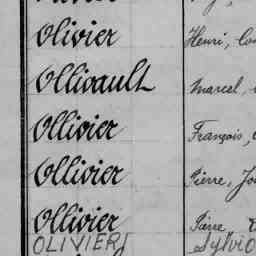 Olivier Henri,
Ollivault Marcel,
Ollivier François,
Ollivier Pierre,
Ollivier Pierre
OLIVIER Sylvio